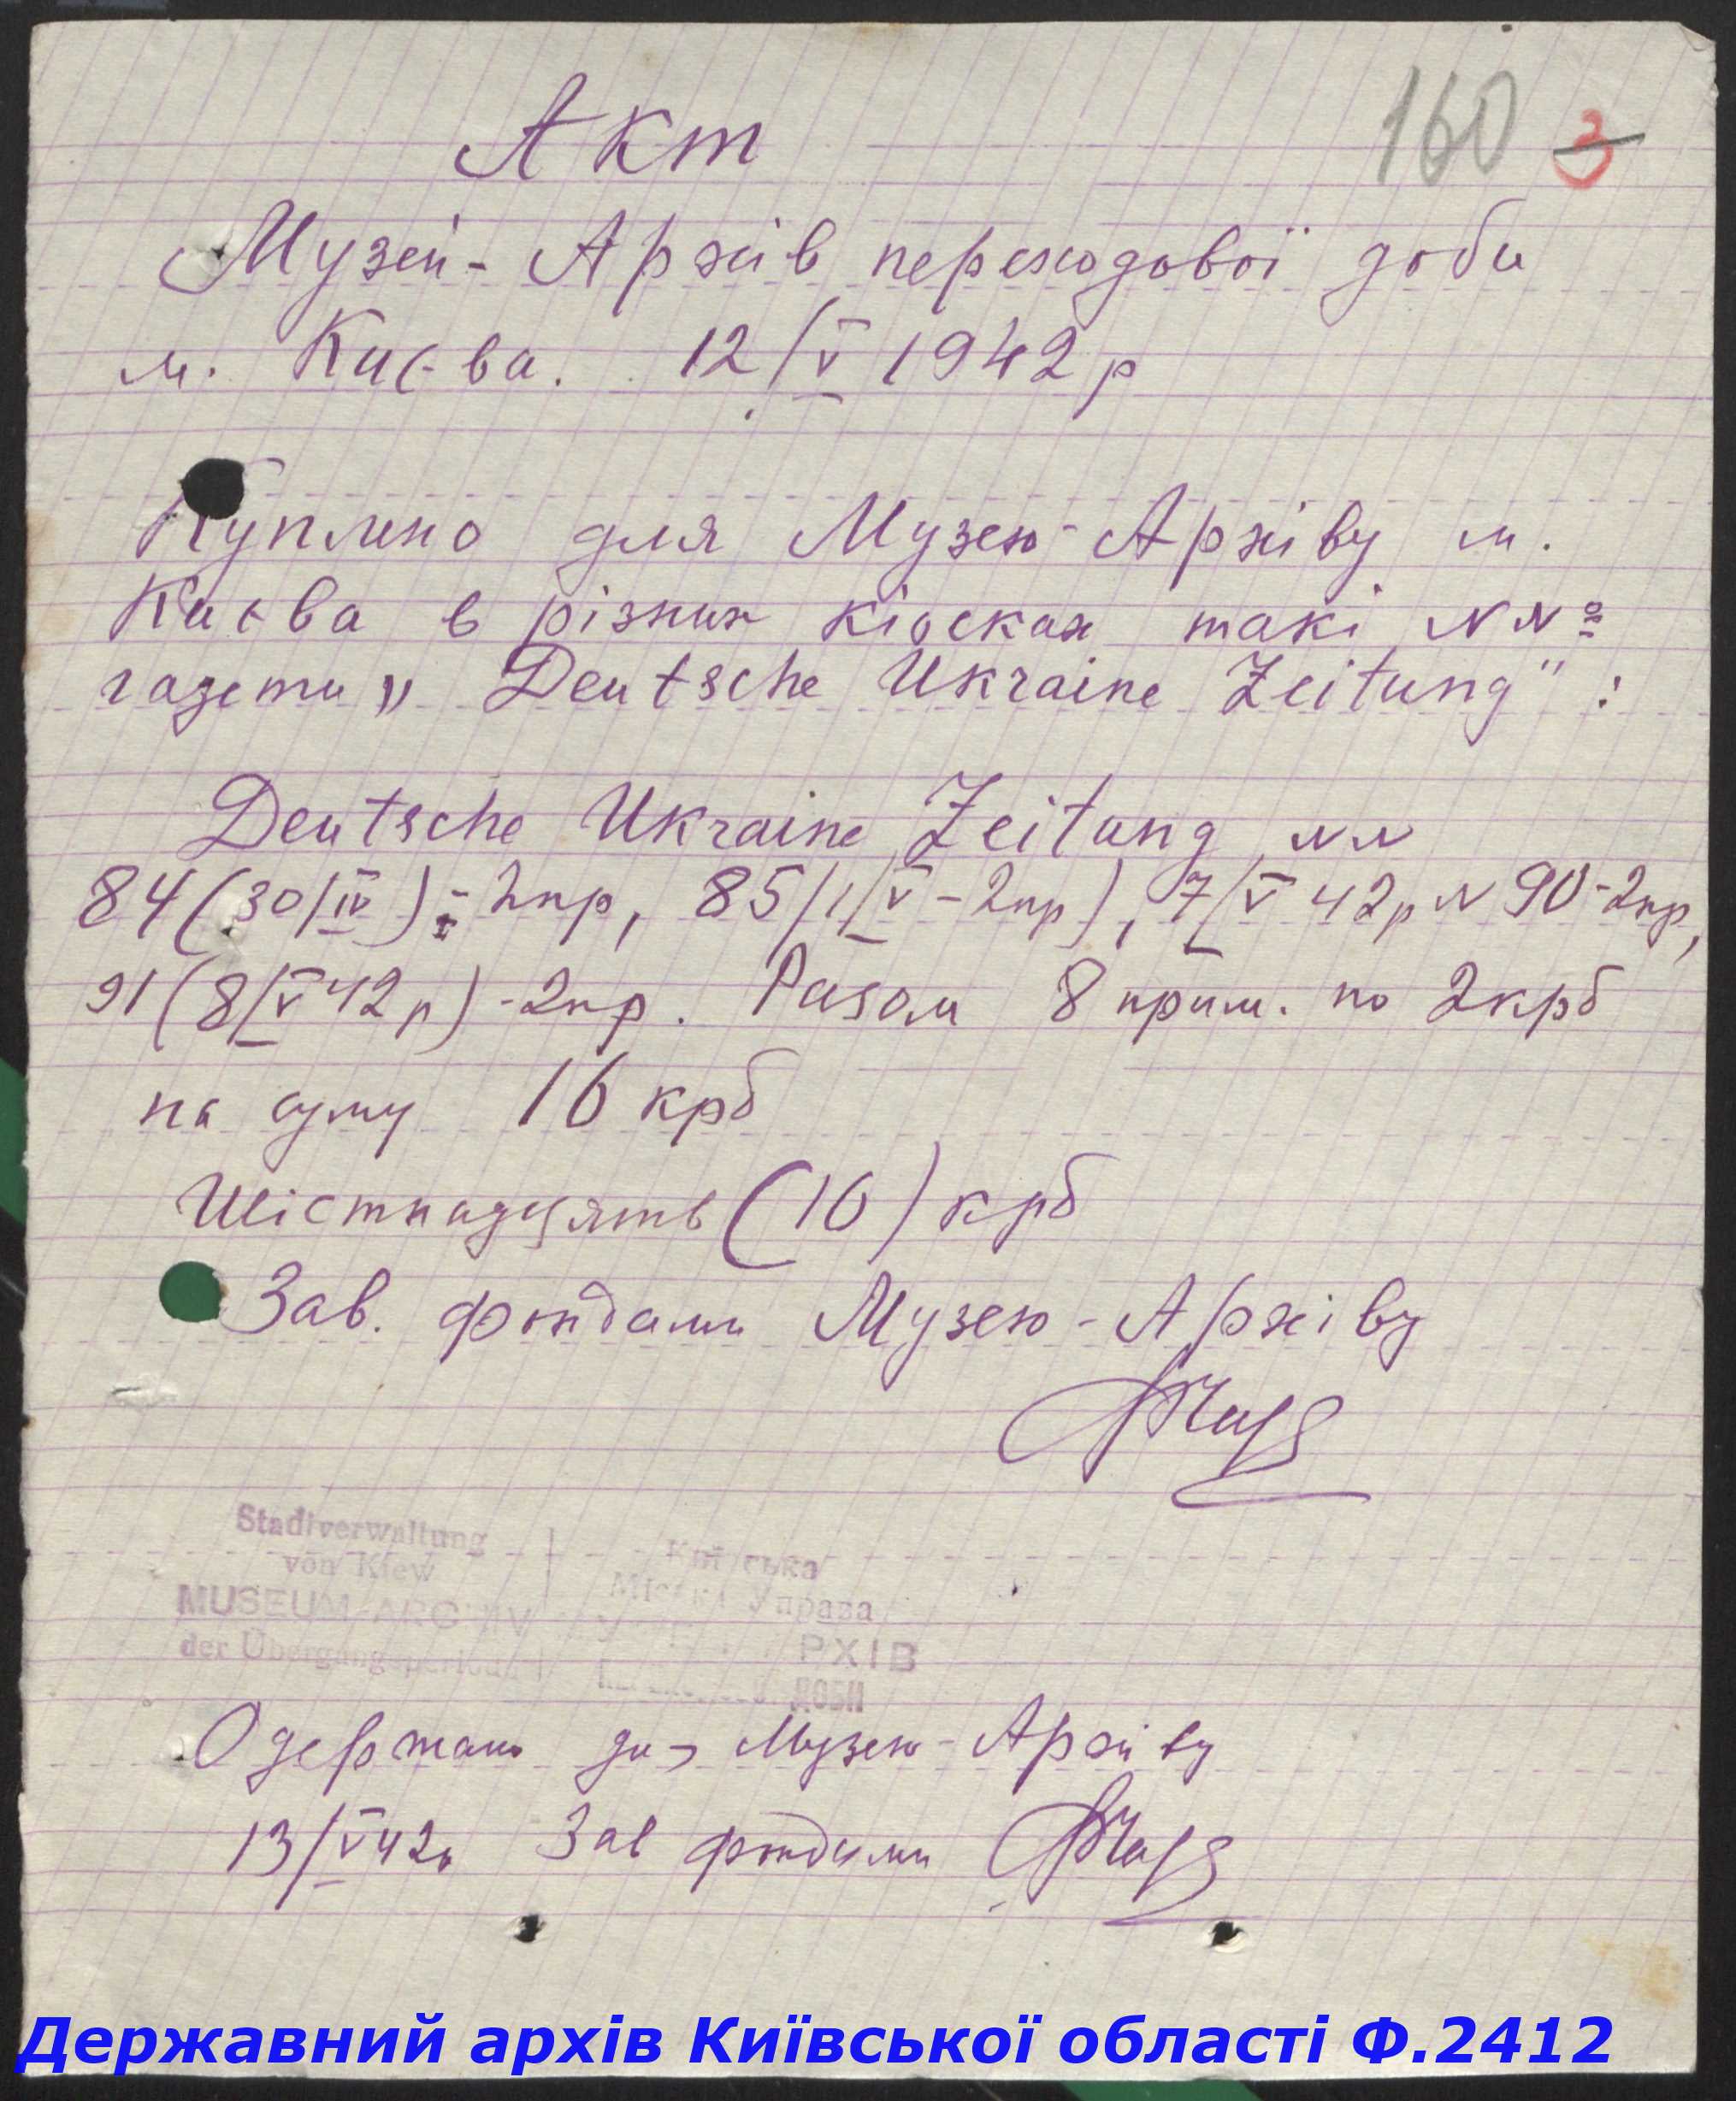 160 3
Акт
Музей-Архів переходової доби
м. Києва. 12/V 1942 р
Куплено для Музею-Архіву м.
Києва в різних кіосках такі NNº
газети „Deutsche Ukraine Zeitung" :
Deutsche Ukraine Zeitung NN
84 (30/IV) - 2 пр, 85 /1/V - 2 пр), 7/V 42 р N 90 - 2 пр,
91 (8/V 42 р) - 2 пр. Разом 8 прим. по 2 крб
на суму 16 крб
Шістнадцять (16) крб
Зав. фондами Музею-Архіву
Stadtverwaltung
von Kiew
MUSEUM-ARCHIV
der Übergangsperiode
Київська
Міська Управа
АРХІВ
ДОБИ
Одержано до Музею-Архіву
13/V 42 р Зав фондами
Державний архів Київської області Ф.2412